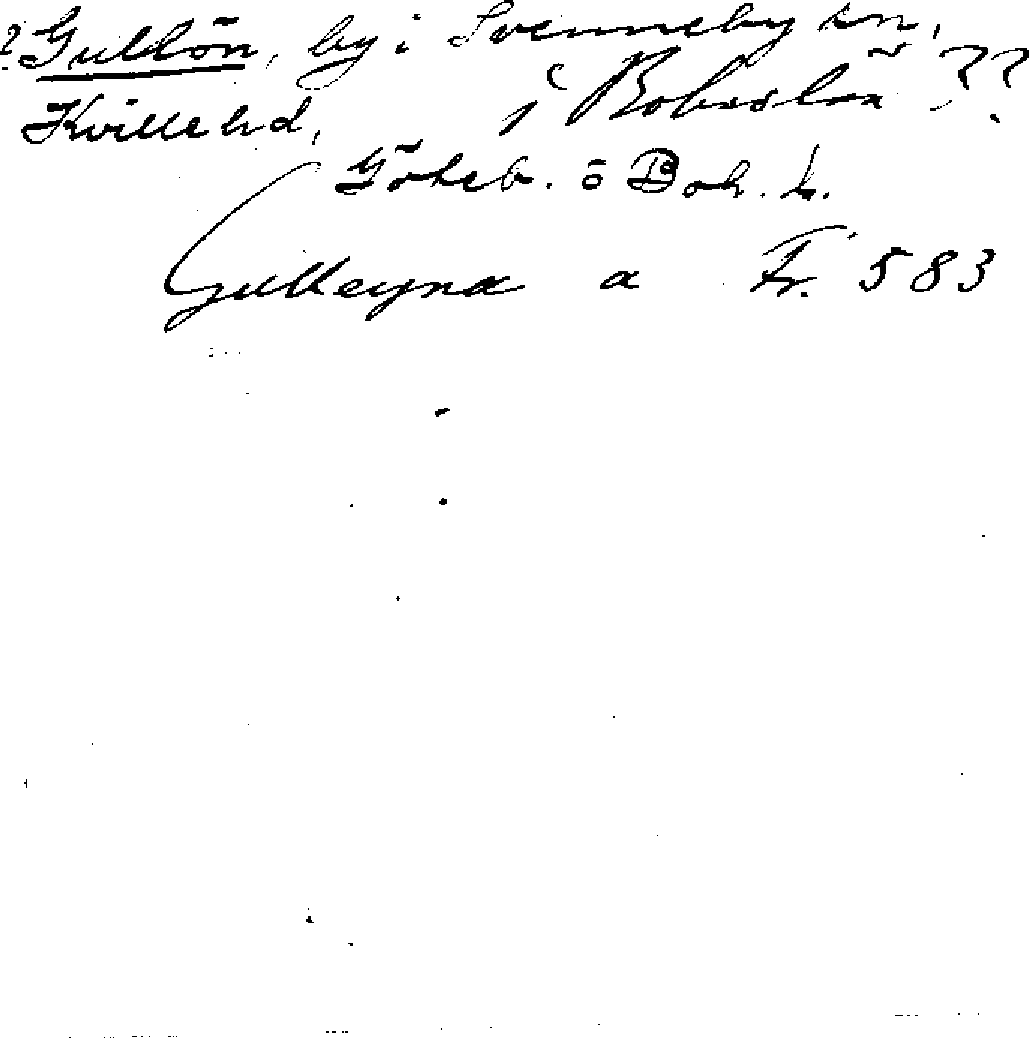 ? Gullön, by i Svenneby sn,
Kville hd, i Bohuslän ??
Göteb. o Boh. l.
Gulleyna a Fr. 583